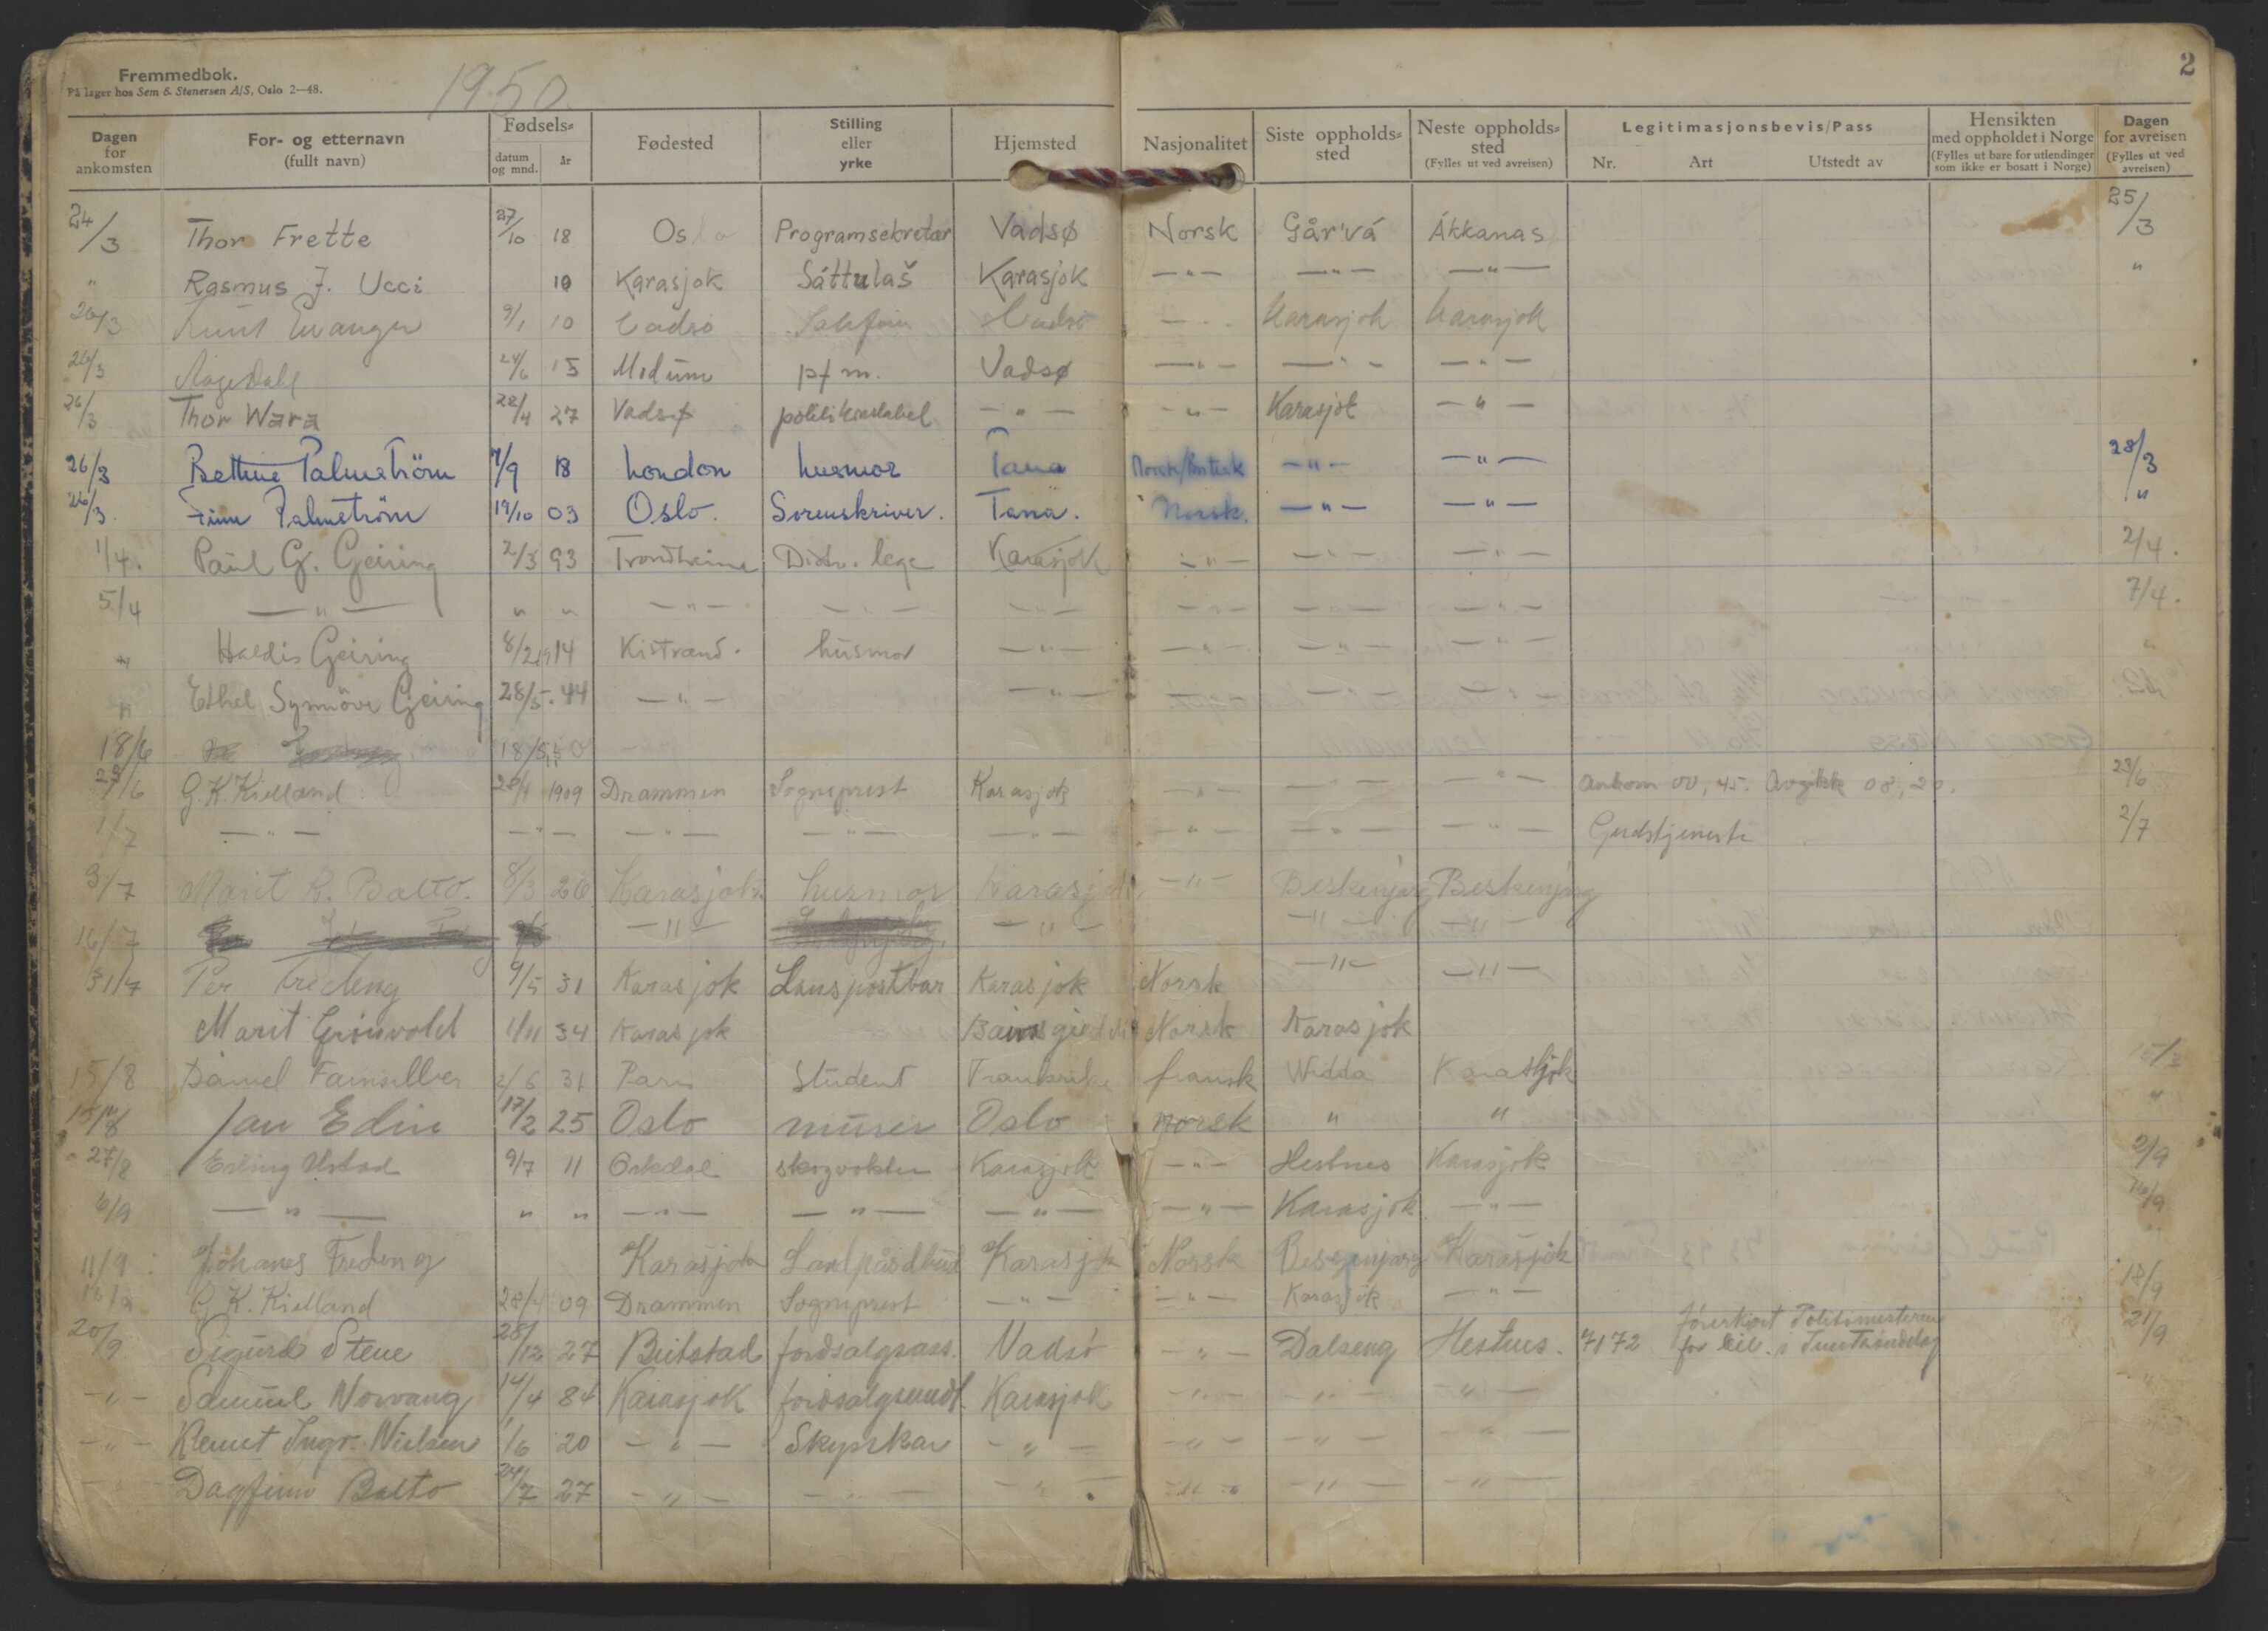 Fremmedbok.
På lager hos Sem & Stenersen A/S, Oslo 2—48.
1950.
2
Dagen for ankomsten For- og etternavn (fullt navn) Fødsels= datum og mnd. år Fødested Stilling eller yrke Hjemsted Nasjonalitet Siste oppholds= sted Neste oppholds= sted (Fylles ut ved avreisen) Legitimasjonsbevis/Pass Nr. Art Utstedt av Hensikten med oppholdet i Norge (Fylles ut bare for utlendinger som ikke er bosatt i Norge) Dagen for avreisen (Fylles ut ved avreisen)
24/3 Thor Frette 27/10 18 Oslo Programsekretær Vadsø Norsk Går'vá Ákkanas 25/3
" Rasmus J. Ucci 10 Karasjok Sáttulaš Karasjok —"— —"— —"— "
26/3 9/1 10 Vadsø Vadsø Karasjok Karasjok
26/3 Aage Dahl 24/6 15 Modum pfm. Vadsø —"— —"— —"—
26/3 Thor Wara 28/4 27 Vadsø —"— —"— Karasjok —"—
26/3 Bettine Palmström 7/9 18 London husmor Tana Norsk/Britisk —"— —"— 28/3
26/3. Finn Palmström 19/10 03 Oslo. Sorenskriver. Tana. Norsk. —"— —"— "
1/4. Paul G. Geiring 2/3 93 Trondheim Distr. lege Karasjok —"— —"— —"— 2/4.
5/4 —"— " " —"— —"— —"— —"— —"— —"— 7/4.
" Haldis Geiring 8/2 1914 Kistrand. husmor —"— —"— —"— —"— "
" Ethel Synnöve Geiring 28/5. 44 —"— —"— —"— —"— —"—
18/6 18/5 50
27/6 G. K. Kielland 28/4 1909 Drammen Sogneprest Karasjok —"— —"— —"— Ankom 00,45. Avgikk 08,20. 28/6
1/7 —"— —"— —"— —"— —"— —"— —"— —"— Gudstjeneste 2/7
3/7 Marit R. Balto. 8/3 26 Karasjok husmor Karasjok —"— Beskenjarg Beskenjarg
16/7 —"— —"— —"— —"—
31/7 Per Fredeng 9/5 31 Karasjok Lanspostbar Karasjok Norsk —"— —"—
Marit Grönvold 1/11 34 Karasjok Norsk Karasjok
15/8 Daniel 2/6 31 Paris Student Frankrike fransk Vidda Karasjok
15/8 Jan Edin 17/2 25 Oslo murer Oslo norsk " " "
27/8 Erling Ustad 9/7 11 Orkdal skogvokter Karasjok —"— Hestnes Karasjok 2/9
6/9 —"— " " —"— —"— —"— —"— Karasjok —"—
11/9 Johanes Fredeng Karasjok Karasjok Norsk Karasjok "
G. K. Kielland 28/4 09 Drammen Sogneprest —"— —"— Karasjok —"— 18/9
20/9 Sigurd Stene 28/12 27 Beitstad jordsalgsass. Vadsö —"— Dalseng Hestnes. 7172 förerkort Politimesteren 21/9
—"— Samuel Norvang 14/4 84 Karasjok Karasjok —"— —"— —"— "
—"— Klemet Ingr. Nielsen 1/6 20 —"— Skysskar —"— —"— —"— —"—
—"— Dagfinn Balto 24/7 27 —"— —"— —"— —"— —"— —"— "